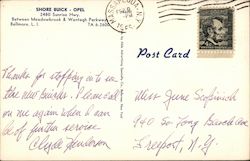 SHORE BUICK - OPEL
2480 Sunrise Hwy.
Between Meadowbrook & Wantagh Parkways
Bellmore, L. I.
Post Card
Thanks for stopping in to see
the new Buicks. Please call on
me again when I can
be of further service.
Clyde Henderson
Miss June
940 So Long Beach Ave
Freeport, N.Y.